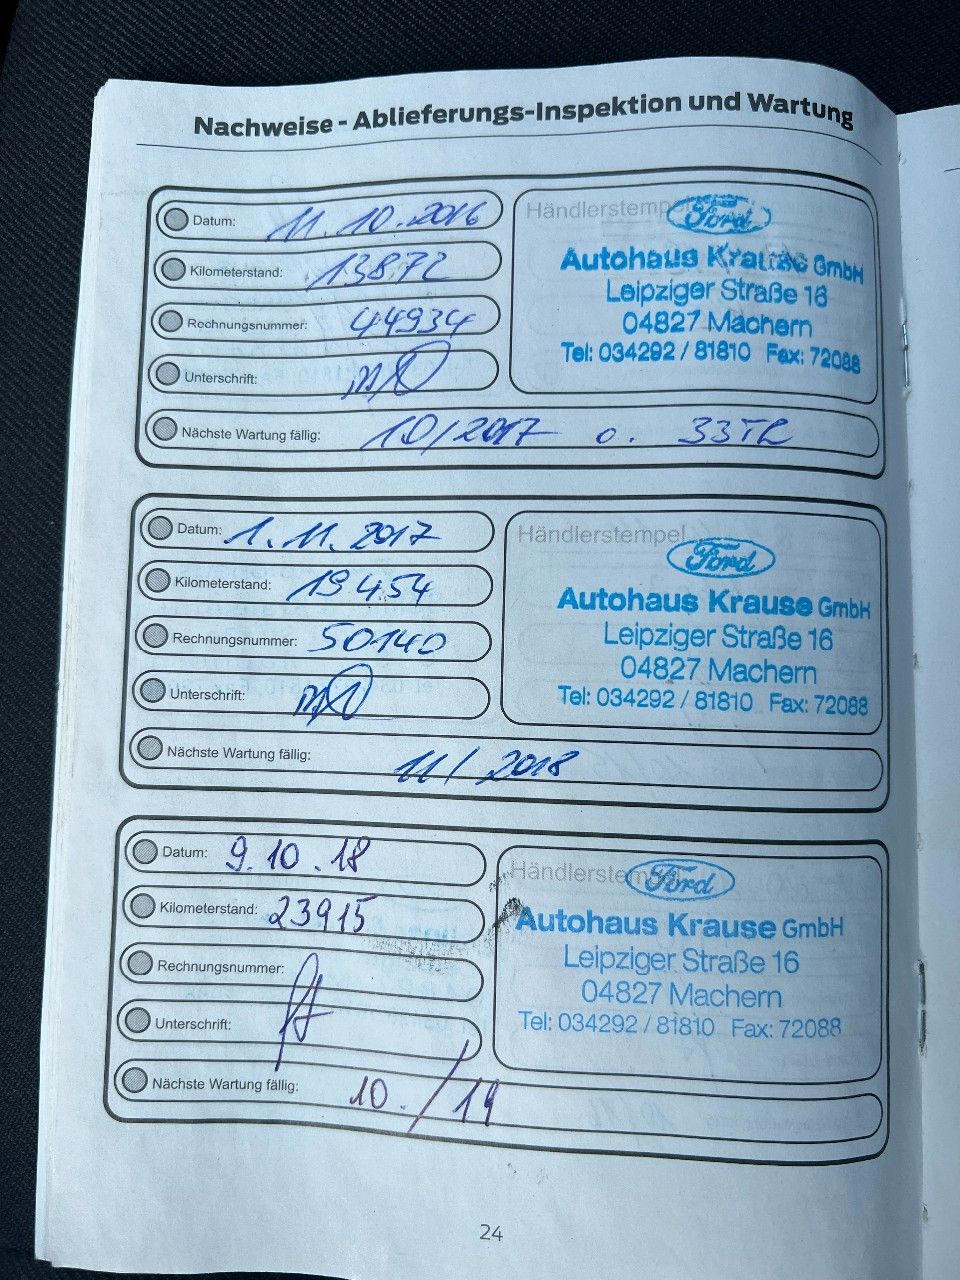 Nachweise - Ablieferungs-Inspektion und Wartung
Datum: 11.10.2016
Kilometerstand: 13872
Rechnungsnummer: 44934
Unterschrift:
Nächste Wartung fällig: 10/2017 o. 33TK
Händlerstempel
Ford
Autohaus Krause GmbH
Leipziger Straße 16
04827 Machern
Tel: 034292 / 81810 Fax: 72088
Datum: 1.11.2017
Kilometerstand: 19454
Rechnungsnummer: 50140
Unterschrift:
Nächste Wartung fällig: 11/2018
Händlerstempel
Ford
Autohaus Krause GmbH
Leipziger Straße 16
04827 Machern
Tel: 034292 / 81810 Fax: 72088
Datum: 9.10.18
Kilometerstand: 23915
Rechnungsnummer:
Unterschrift:
Nächste Wartung fällig: 10./19
Händlerstempel
Ford
Autohaus Krause GmbH
Leipziger Straße 16
04827 Machern
Tel: 034292 / 81810 Fax: 72088
24